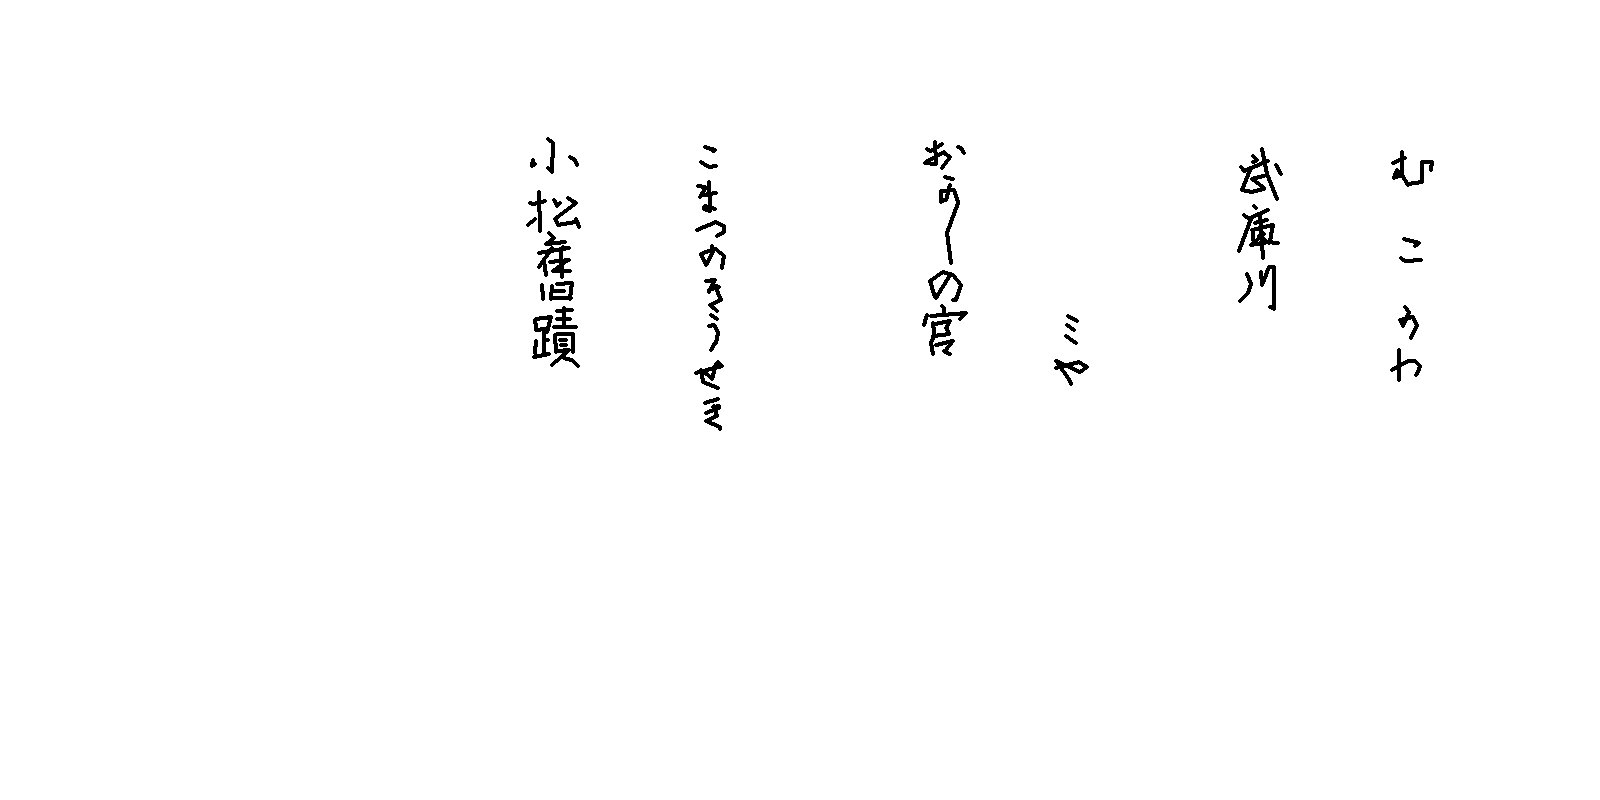 むこかわ
武庫川
ミや
おかしの宮
こまつのきうせき
小松舊蹟